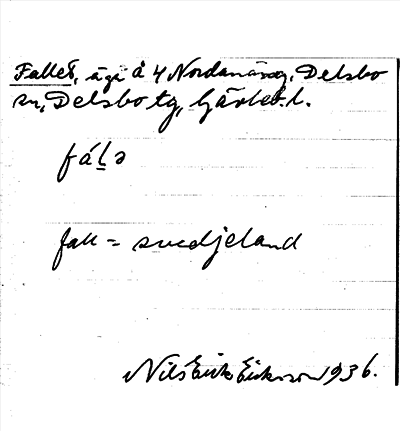 Fallet, äga å 4 Nordanäng, Delsbo
sn, Delsbo tg, Gävleb. l.
fáḻə
fall = svedjeland
Nils Erik Eriksson 1936.